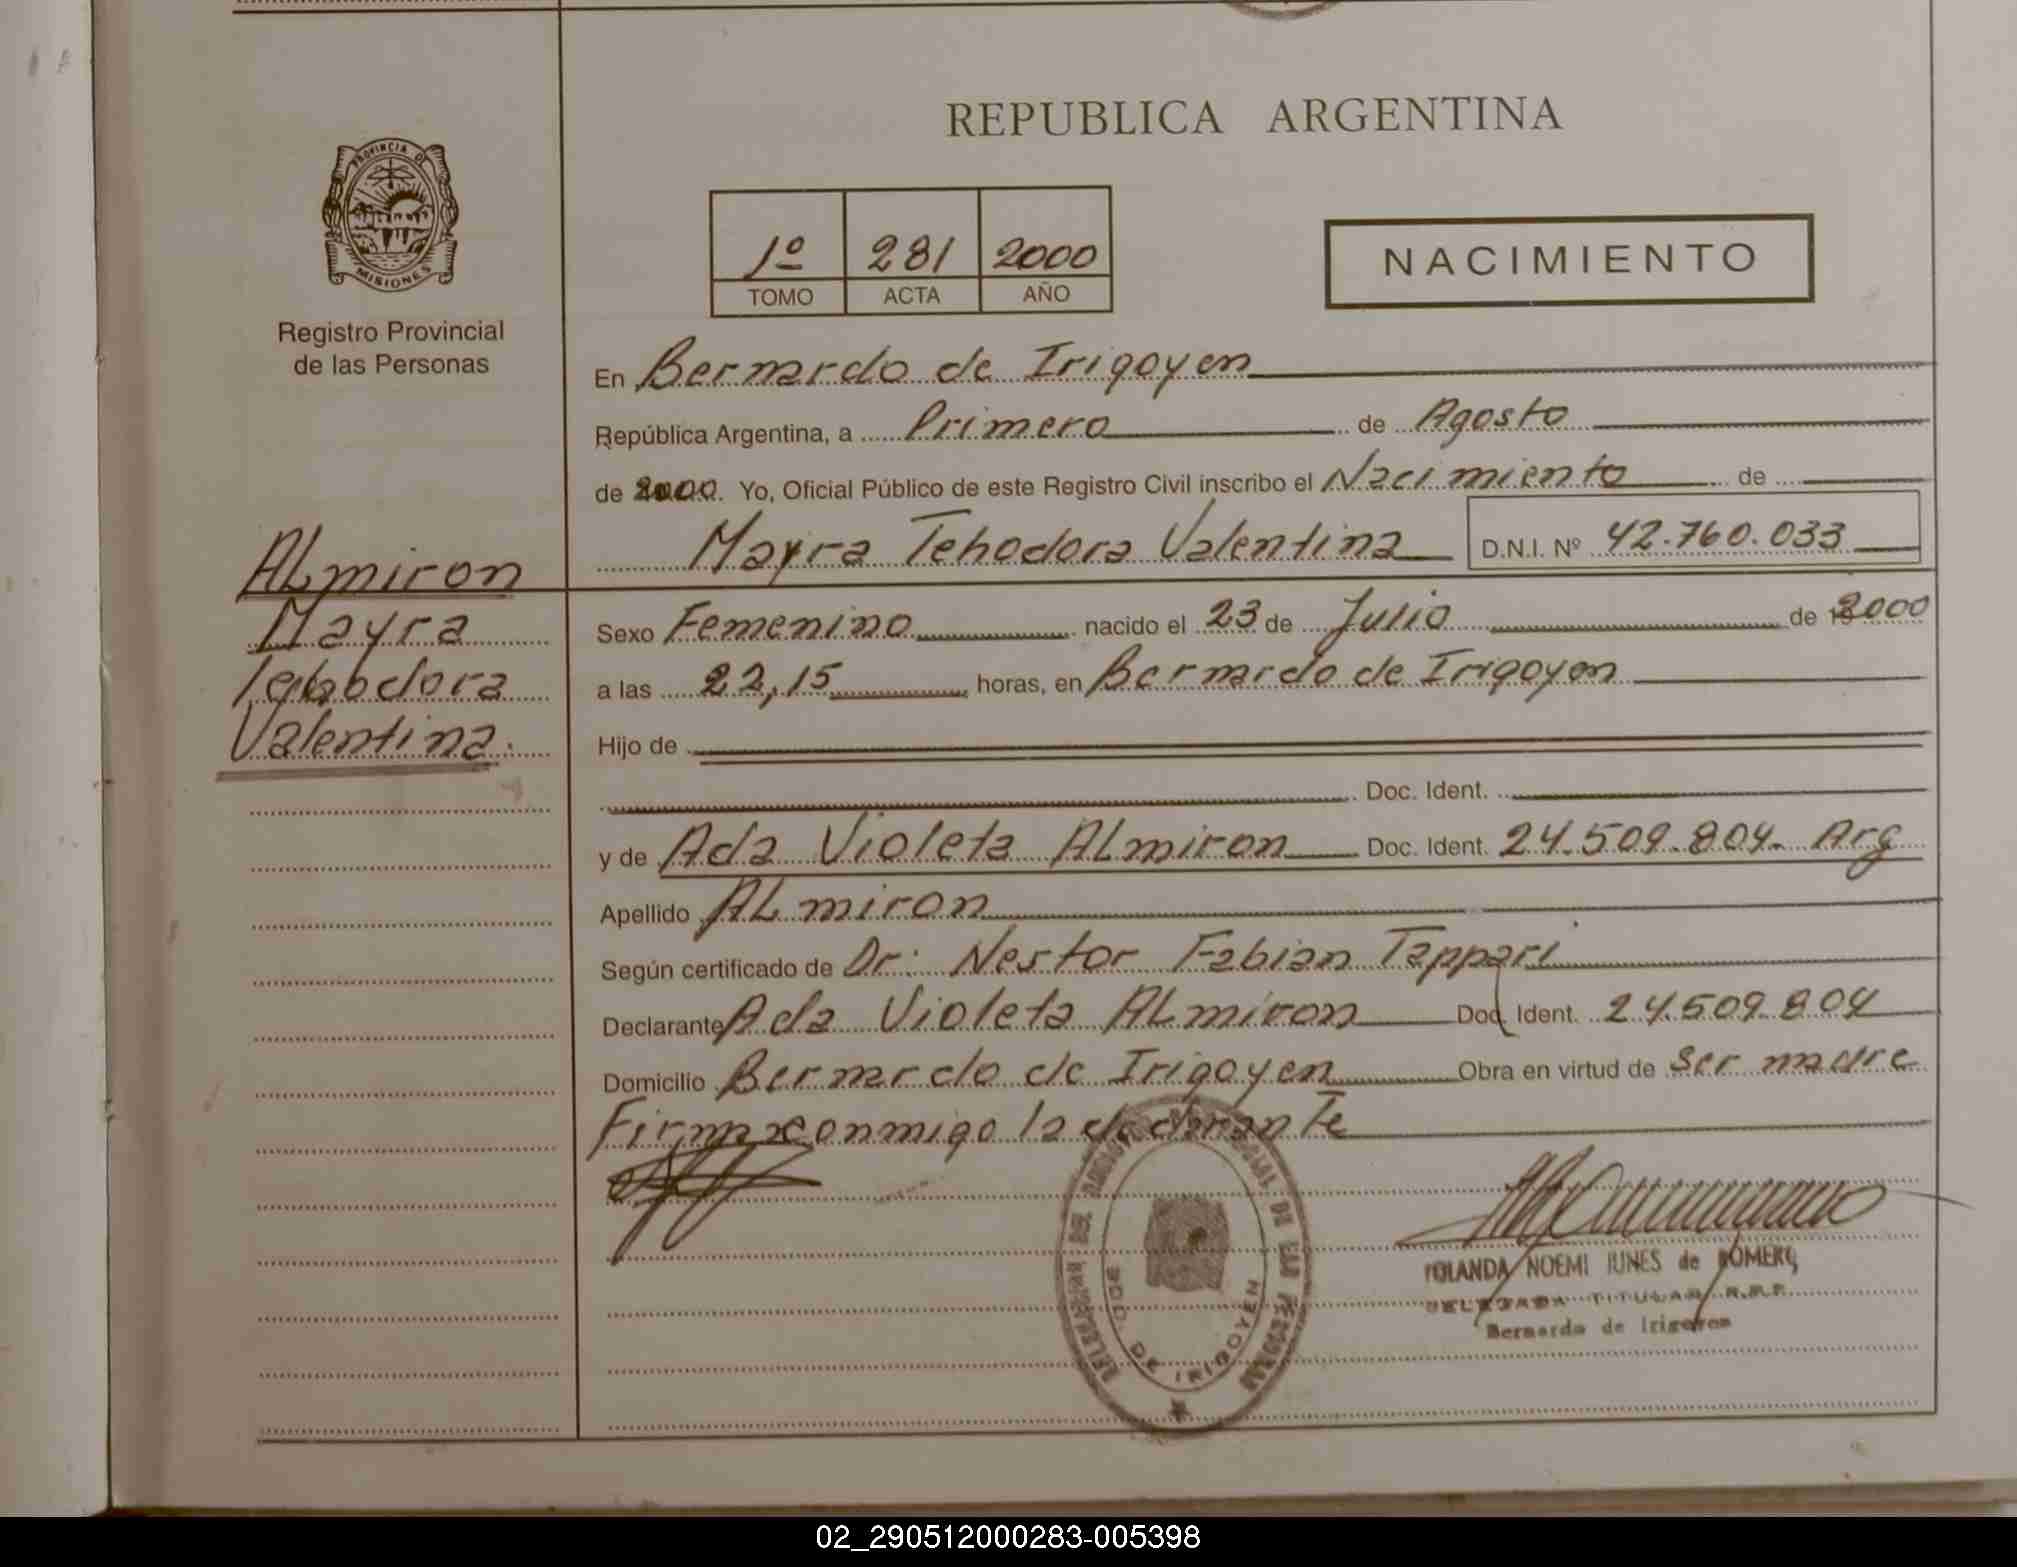 REPUBLICA ARGENTINA
PROVINCIA DE
MISIONES
Registro Provincial
de las Personas
1º 281 2000
TOMO ACTA AÑO
NACIMIENTO
En Bernardo de Irigoyen
República Argentina, a Primero de Agosto
de 2000. Yo, Oficial Público de este Registro Civil inscribo el Nacimiento de
Mayra Tehodora Valentina D.N.I. Nº 42.760.033
ALmiron
Mayra
Tehodora
Valentina.
Sexo Femenino nacido el 23 de Julio de 2000
a las 22,15 horas, en Bernardo de Irigoyen
Hijo de
Doc. Ident.
y de Ada Violeta ALmiron Doc. Ident. 24.509.804. Arg
Apellido ALmiron
Según certificado de Dr: Nestor Fabian Tappari
Declarante Ada Violeta ALmiron Doc. Ident. 24.509.804
Domicilio Bernardo de Irigoyen Obra en virtud de Ser madre
Firma conmigo la declarante
BDO. DE IRIGOYEN
YOLANDA NOEMI IUNES de ROMERO
DELEGADA TITULAR R.P.P.
Bernardo de Irigoyen
02_290512000283-005398